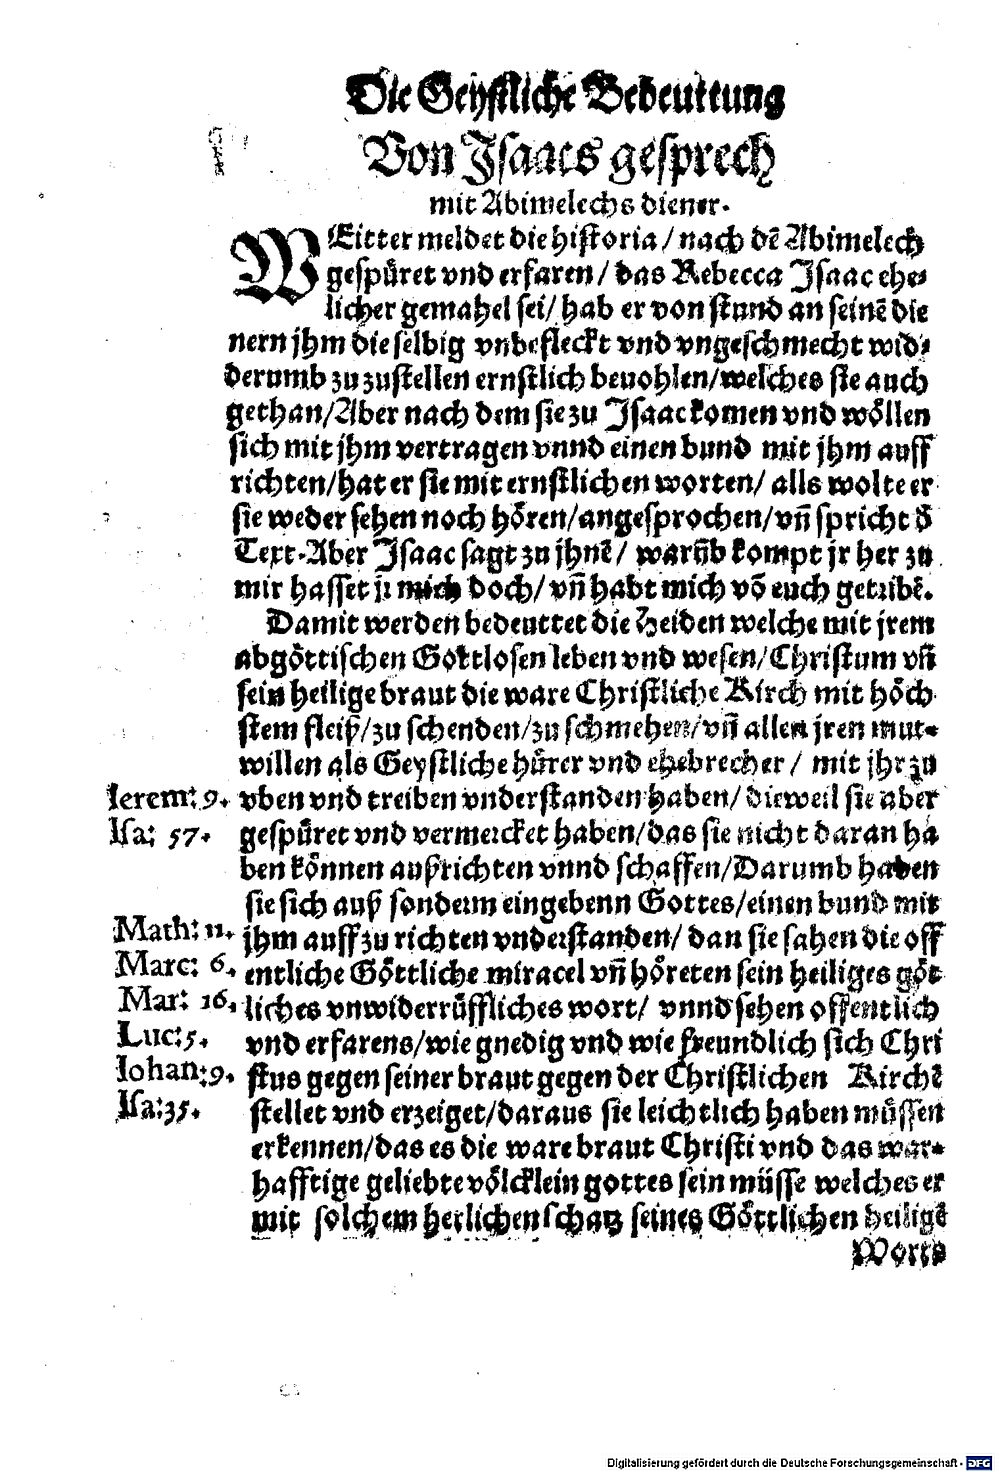 Die Geystliche Bedeuttung
Von Isaacs gesprech
mit Abimelechs diener.
WEitter meldet die historia / nach dē Abimelech
gespüret vnd erfaren / das Rebecca Isaac ehe-
licher gemahel sei / hab er von stund an seinē die
nern jhm die selbig vnbefleckt vnd vngeschmecht wid-
derumb zu zustellen ernstlich beuohlen / welches sie auch
gethan / Aber nach dem sie zu Isaac komen vnd wöllen
sich mit jhm vertragen vnnd einen bund mit jhm auff
richten / hat er sie mit ernstlichen worten / alls wolte er
sie weder sehen noch hören / angesprochen / vñ spricht ď
Text. Aber Isaac sagt zu jhnē / warüb kompt jr her zu
mir hasset jr mich doch / vñ habt mich vō euch getribē.
Damit werden bedeuttet die Heiden welche mit jrem
abgöttischen Gottlosen leben vnd wesen / Christum vñ
sein heilige braut die ware Christliche Kirch mit höch
stem fleiß / zu schenden / zu schmehen / vñ allen jren mut-
willen als Geystliche hürer vnd ehebrecher / mit jhr zu
Ierem: 9. vben vnd treiben vnderstanden haben / dieweil sie aber
Isa: 57. gespüret vnd vermercket haben / das sie nicht daran ha
ben können außrichten vnnd schaffen / Darumb haben
sie sich auß sonderm eingebenn Gottes / einen bund mit
Math: 11. jhm auff zu richten vnderstanden / dan sie sahen die off
Marc: 6. entliche Göttliche miracel vñ höreten sein heiliges göt
Mar: 16. liches vnwiderrüffliches wort / vnnd sehen offentlich
Luc: 5. vnd erfarens / wie gnedig vnd wie freundlich sich Chri
Iohan: 9. stus gegen seiner braut gegen der Christlichen Kirchē
Isa: 35. stellet vnd erzeiget / daraus sie leichtlich haben müssen
erkennen / das es die ware braut Christi vnd das war-
hafftige geliebte völcklein gottes sein müsse welches er
mit solchem herlichen schatz seines Göttlichen heiligē
Worts
Digitalisierung gefördert durch die Deutsche Forschungsgemeinschaft - DFG